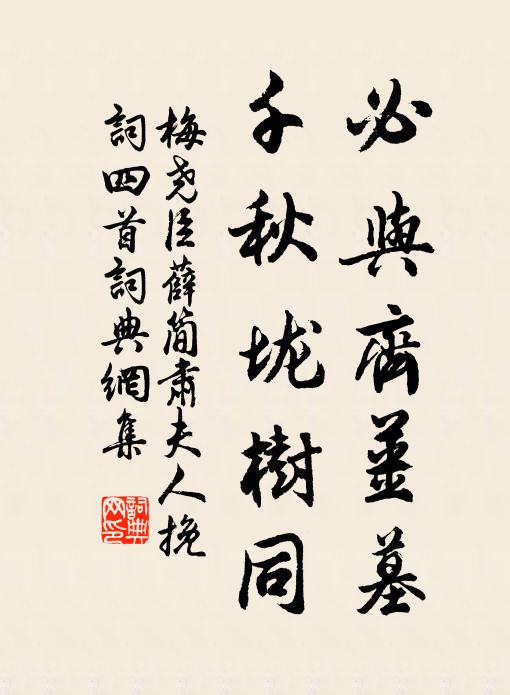 必與齊姜墓
千秋垅樹同
梅尧臣薛简肃夫人挽
詞四首詞典網集
詞典
网印